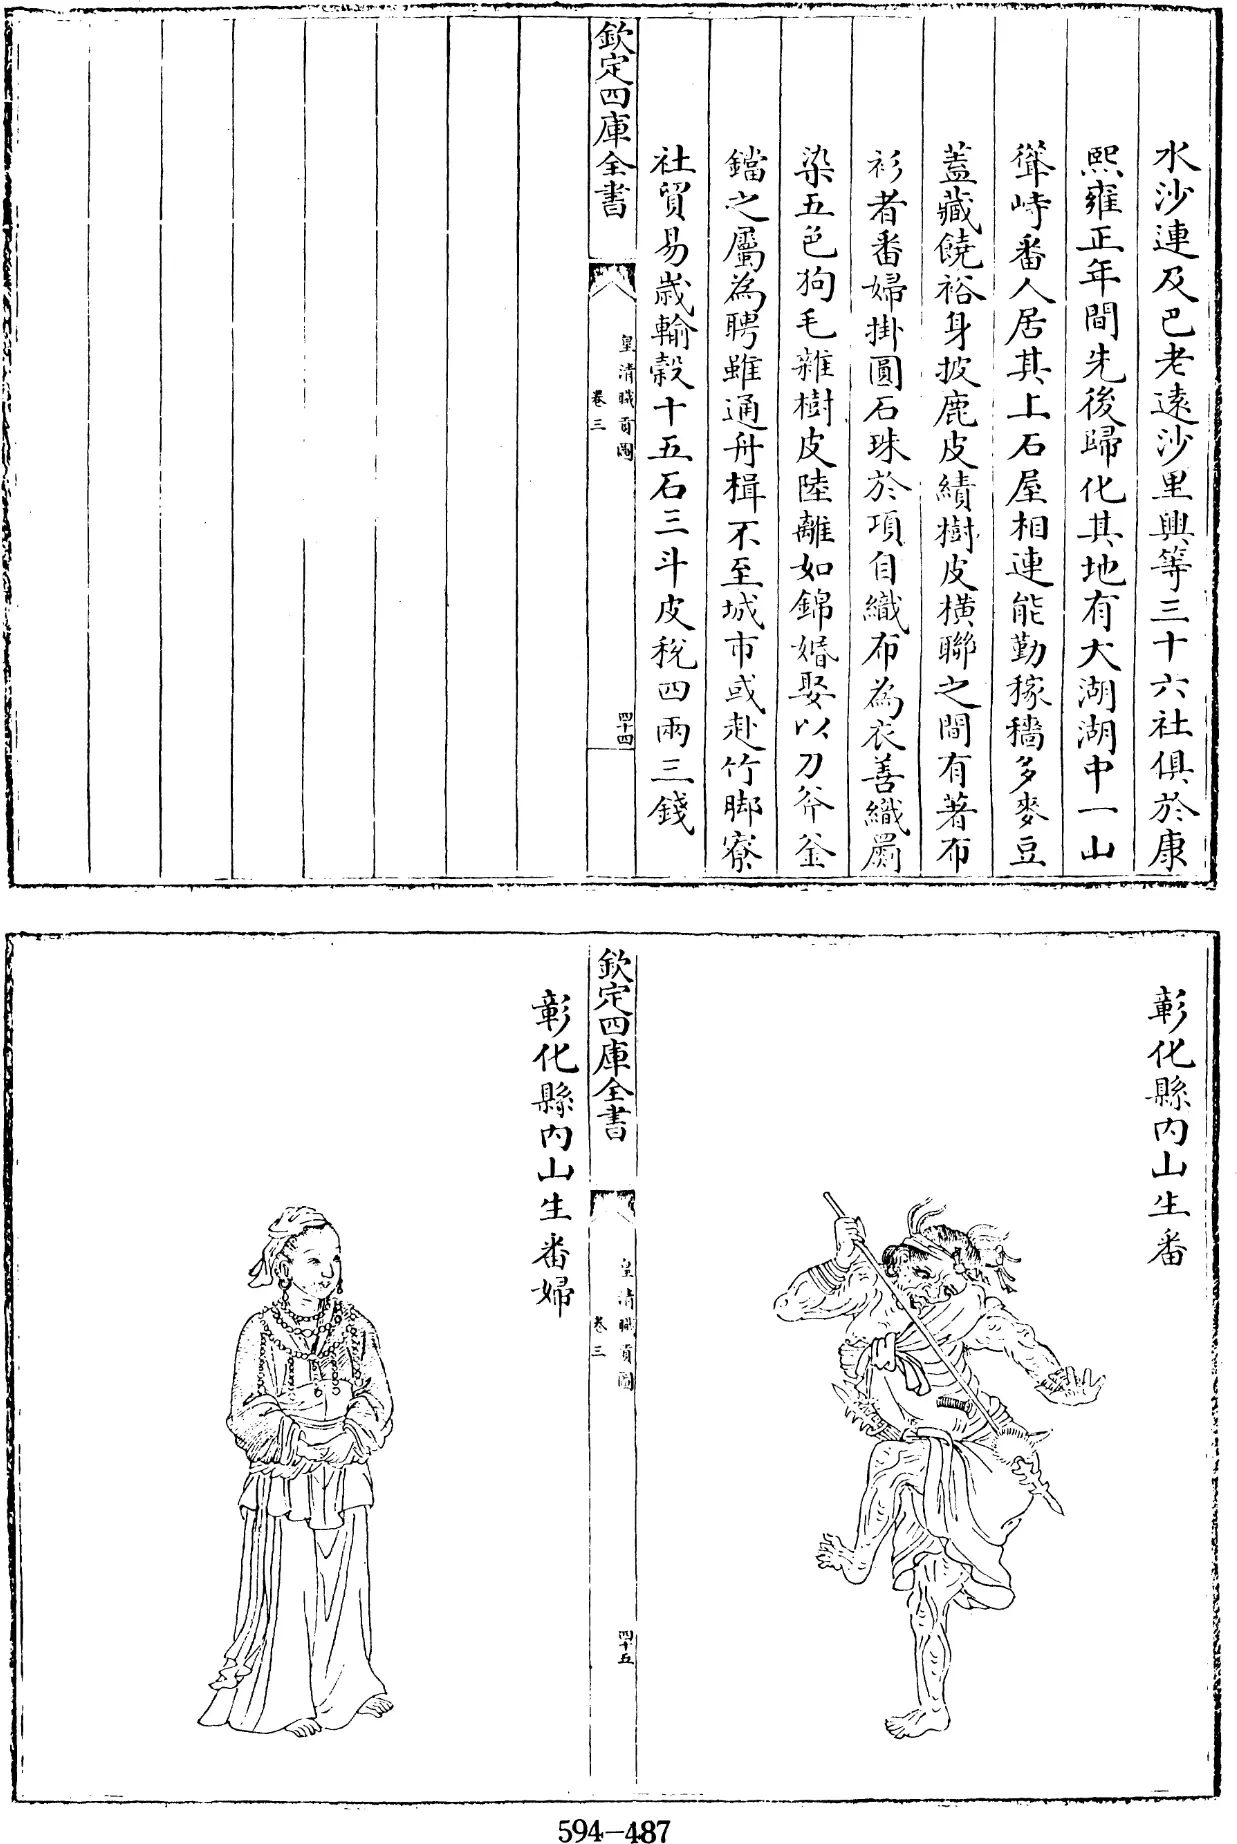 水沙連及巴老遠沙里興等三十六社俱於康
熙雍正年間先後歸化其地有大湖湖中一山
聳峙番人居其上石屋相連能勤稼穡多麥豆
蓋藏饒裕身披鹿皮績樹皮橫聯之間有著布
衫者番婦掛圓石珠於項自織布為衣善織罽
染五色狗毛雜樹皮陸離如錦婚娶以刀斧釜
鐺之屬為聘雖通舟楫不至城市或赴竹脚寮
社貿易歲輸穀十五石三斗皮稅四兩三錢
欽定四庫全書
皇清職貢圖
卷三
四十四
彰化縣內山生番
欽定四庫全書
皇清職貢圖
卷三
四十五
彰化縣內山生番婦
594-487